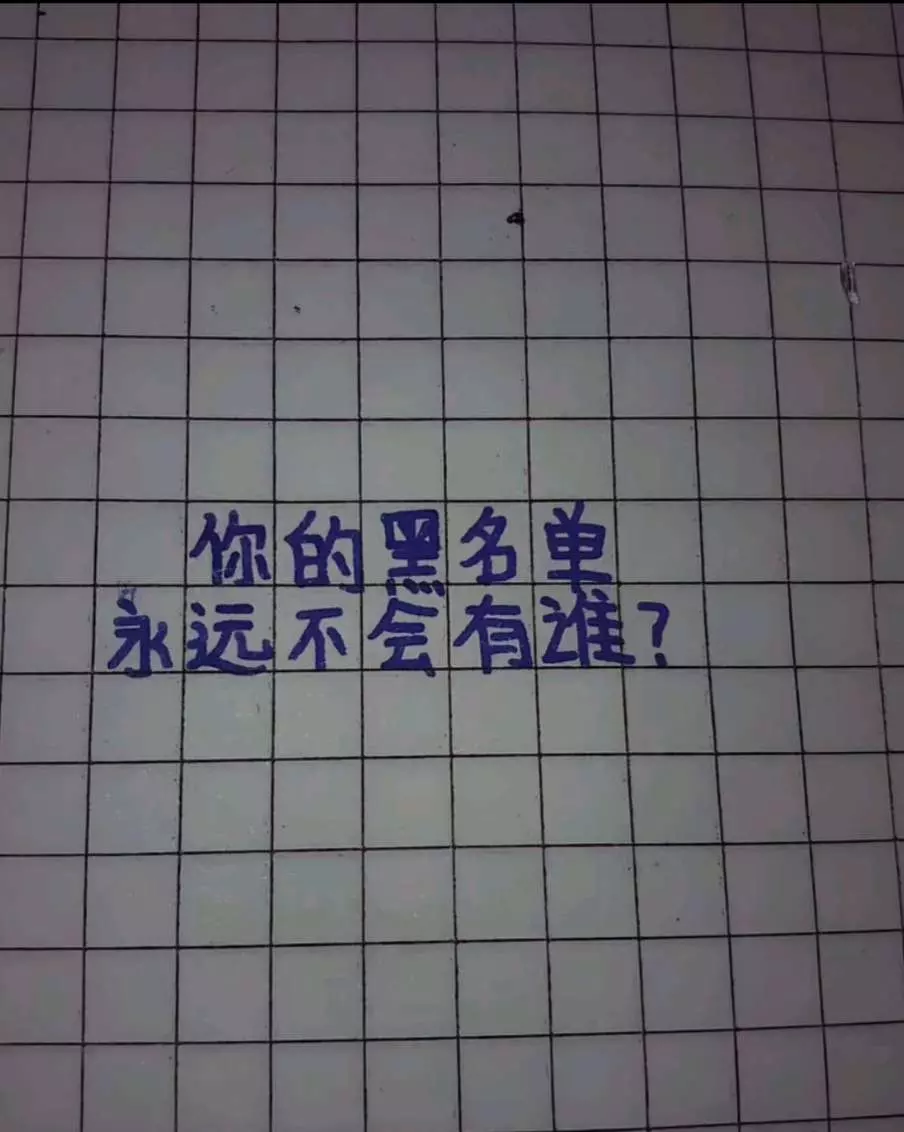 你的黑名单
永远不会有谁?